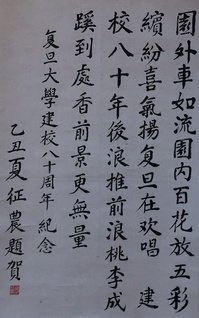 園外車如流園内百花放五彩
繽紛喜氣揚复旦在欢唱　建
校八十年後浪推前浪桃李成
蹊到處香前景更無量
复旦大學建校八十周年紀念
乙丑夏征農題賀